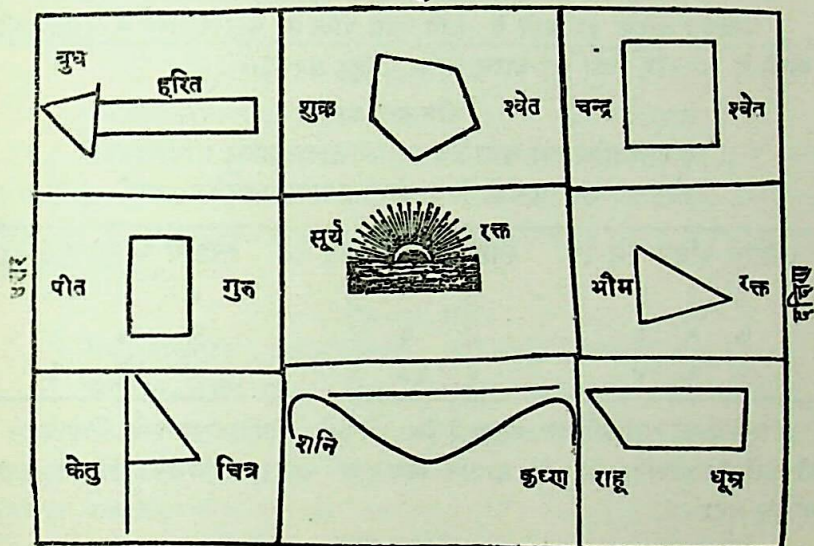 बुध
हरित
शुक्र श्वेत
चन्द्र श्वेत
उत्तर
पीत गुरु
सूर्य रक्त
भौम रक्त
दक्षिण
केतु चित्र
शनि
कृष्ण
राहू धूम्र